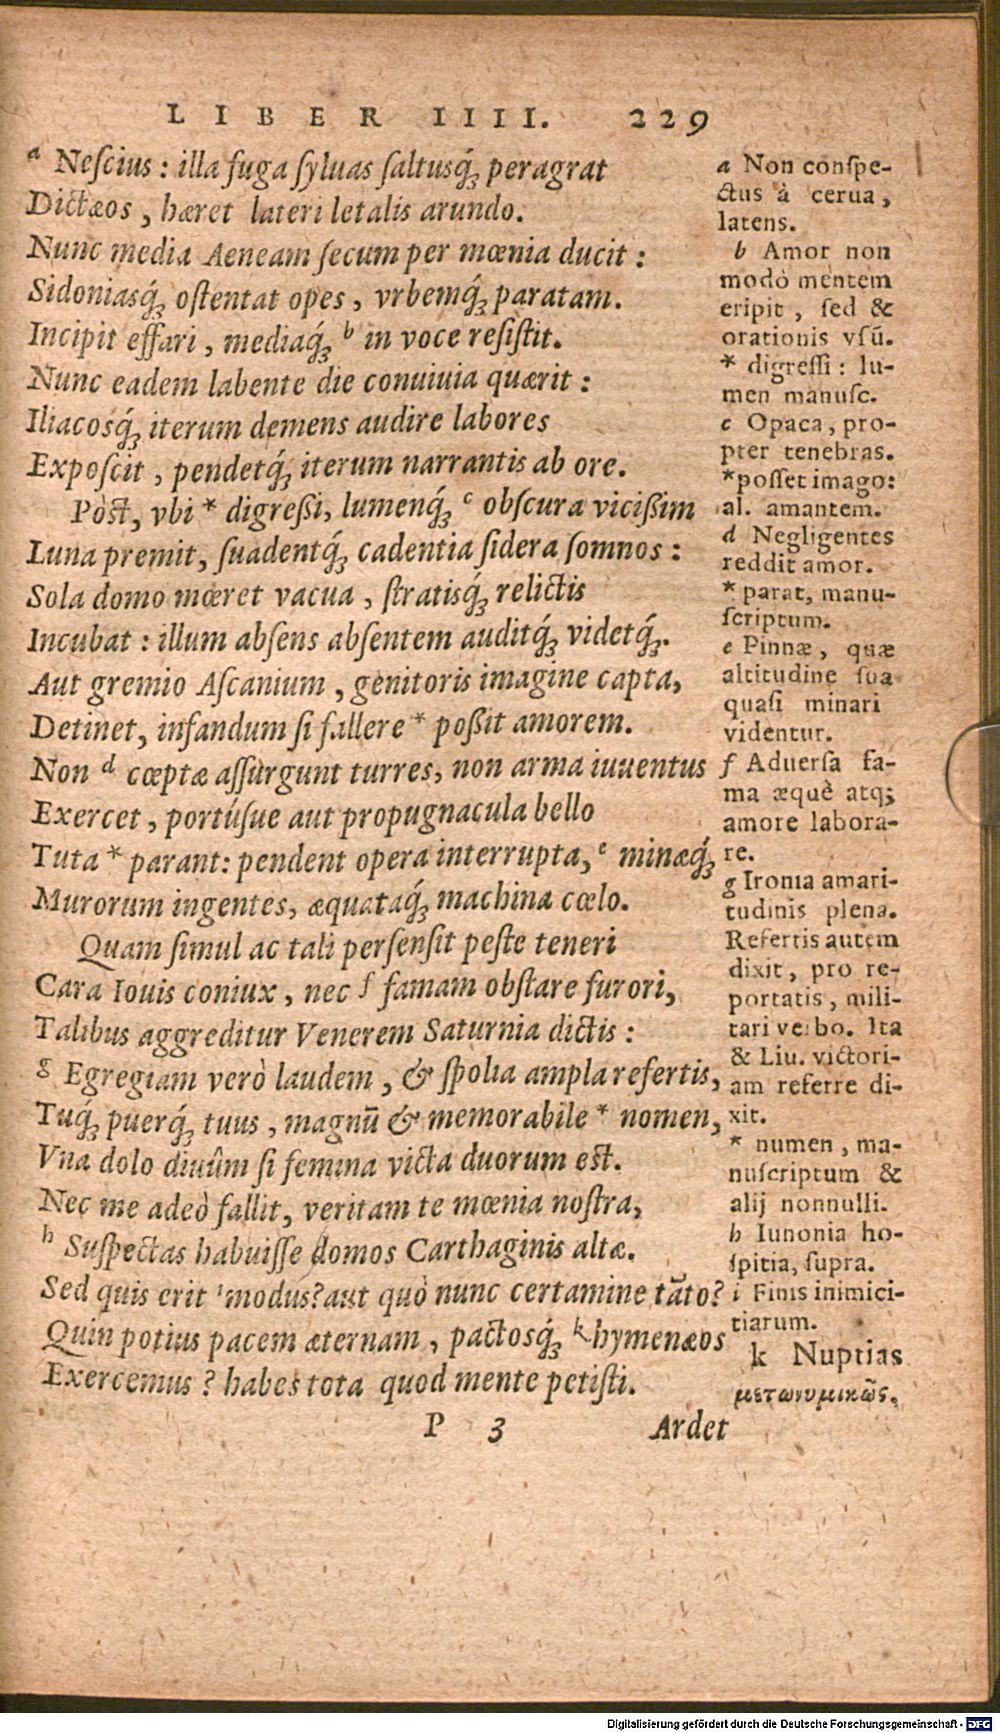 LIBER IIII. 229
a Neſcius: illa fuga ſyluas ſaltusq́ꝫ peragrat
Dictæos, hæret lateri letalis arundo.
Nunc media Aeneam ſecum per mœnia ducit:
Sidoniasq́ꝫ oſtentat opes, vrbemq́ꝫ paratam.
Incipit effari, mediaq́ꝫ b in voce reſiſtit.
Nunc eadem labente die conuiuia quærit:
Iliacosq́ꝫ iterum demens audire labores
Expoſcit, pendetq́ꝫ iterum narrantis ab ore.
Pòſt, vbi * digreſsi, lumenq́ꝫ c obſcura viciſsim
Luna premit, ſuadentq́ꝫ cadentia ſidera ſomnos:
Sola domo mœret vacua, ſtratisq́ꝫ relictis
Incubat: illum abſens abſentem auditq́ꝫ videtq́ꝫ.
Aut gremio Aſcanium, genitoris imagine capta,
Detinet, infandum ſi fallere * poſsit amorem.
Non d cœptæ aſſurgunt turres, non arma iuuentus
Exercet, portúſue aut propugnacula bello
Tuta * parant: pendent opera interrupta, e minæq́ꝫ
Murorum ingentes, æquataq́ꝫ machina cœlo.
Quam ſimul ac tali perſenſit peſte teneri
Cara Iouis coniux, nec f famam obſtare furori,
Talibus aggreditur Venerem Saturnia dictis:
g Egregiam verò laudem, & ſpolia ampla refertis,
Tuq́ꝫ puerq́ꝫ tuus, magnū & memorabile * nomen,
Vna dolo diuûm ſi femina victa duorum eſt.
Nec me adeò fallit, veritam te mœnia noſtra,
h Suſpectas habuiſſe domos Carthaginis altæ.
Sed quis erit i modus? aut quò nunc certamine tāto?
Quin potius pacem æternam, pactosq́ꝫ k hymenæos
Exercemus? habes tota quod mente petiſti.
P 3 Ardet
a Non conſpe-
ctus à cerua,
latens.
b Amor non
modò mentem
eripit, ſed &
orationis vſū.
* digreſſi: lu-
men manuſc.
c Opaca, pro-
pter tenebras.
*poſſet imago:
al. amantem.
d Negligentes
reddit amor.
* parat, manu-
ſcriptum.
e Pinnæ, quæ
altitudine ſua
quaſi minari
videntur.
f Aduerſa fa-
ma æquè atqꝫ
amore labora-
re.
g Ironia amari-
tudinis plena.
Refertis autem
dixit, pro re-
portatis, mili-
tari verbo. Ita
& Liu. victori-
am referre di-
xit.
* numen, ma-
nuſcriptum &
alij nonnulli.
h Iunonia ho-
ſpitia, ſupra.
i Finis inimici-
tiarum.
k Nuptias
μετωνυμικῶς.
Digitalisierung gefördert durch die Deutsche Forschungsgemeinschaft - DFG